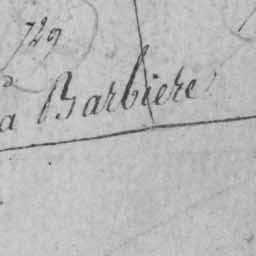 729
a Barbiere